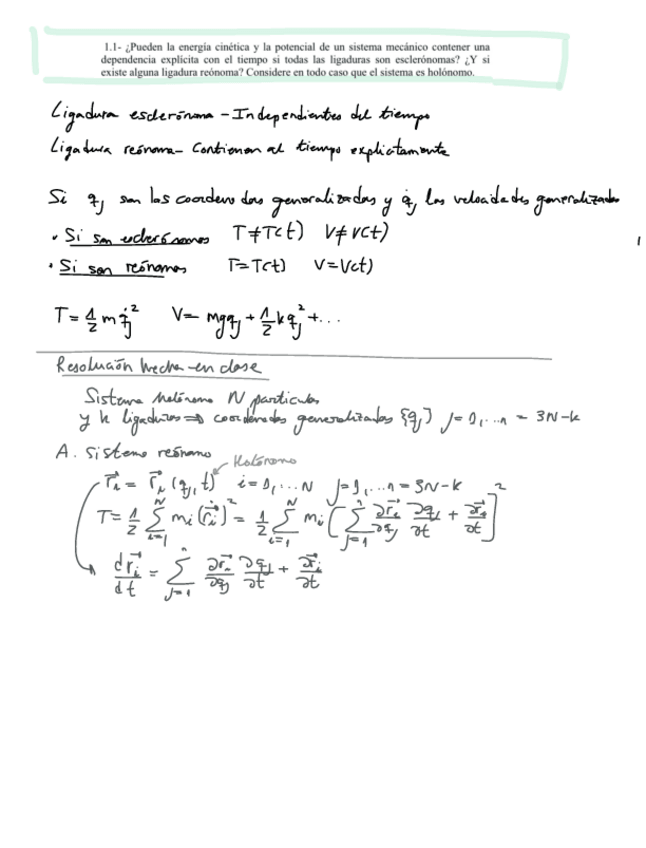 1.1- ¿Pueden la energía cinética y la potencial de un sistema mecánico contener una
dependencia explícita con el tiempo si todas las ligaduras son esclerónomas? ¿Y si
existe alguna ligadura reónoma? Considere en todo caso que el sistema es holónomo.
Ligadura esclerónoma - Independientes del tiempo
Ligadura reónoma - Contienen al tiempo explícitamente
Si qj son las coordenadas generalizadas y q̇j las velocidades generalizadas
• Si son esclerónomos T≠T(t) V≠V(t)
• Si son reónomos T=T(t) V=V(t)
T = 1/2 m q̇j² V = mgqj + 1/2 k qj² + ...
Resolución hecha en clase
Sistema holónomo N partículas
y k ligaduras ⇒ coordenadas generalizadas {qj} j=1,...n = 3N-k
A. Sistema reónomo
Holónomo
r⃗i = r⃗i (qj, t) i=1,...N j=1,...n = 3N-k
T = 1/2 Σ_{i=1}^{N} mi (ṙ⃗i)² = 1/2 Σ_{i=1}^{N} mi [ Σ_{j=1}^{n} ∂r⃗i/∂qj ∂qj/∂t + ∂r⃗i/∂t ]²
dr⃗i/dt = Σ_{j=1}^{n} ∂r⃗i/∂qj ∂qj/∂t + ∂r⃗i/∂t